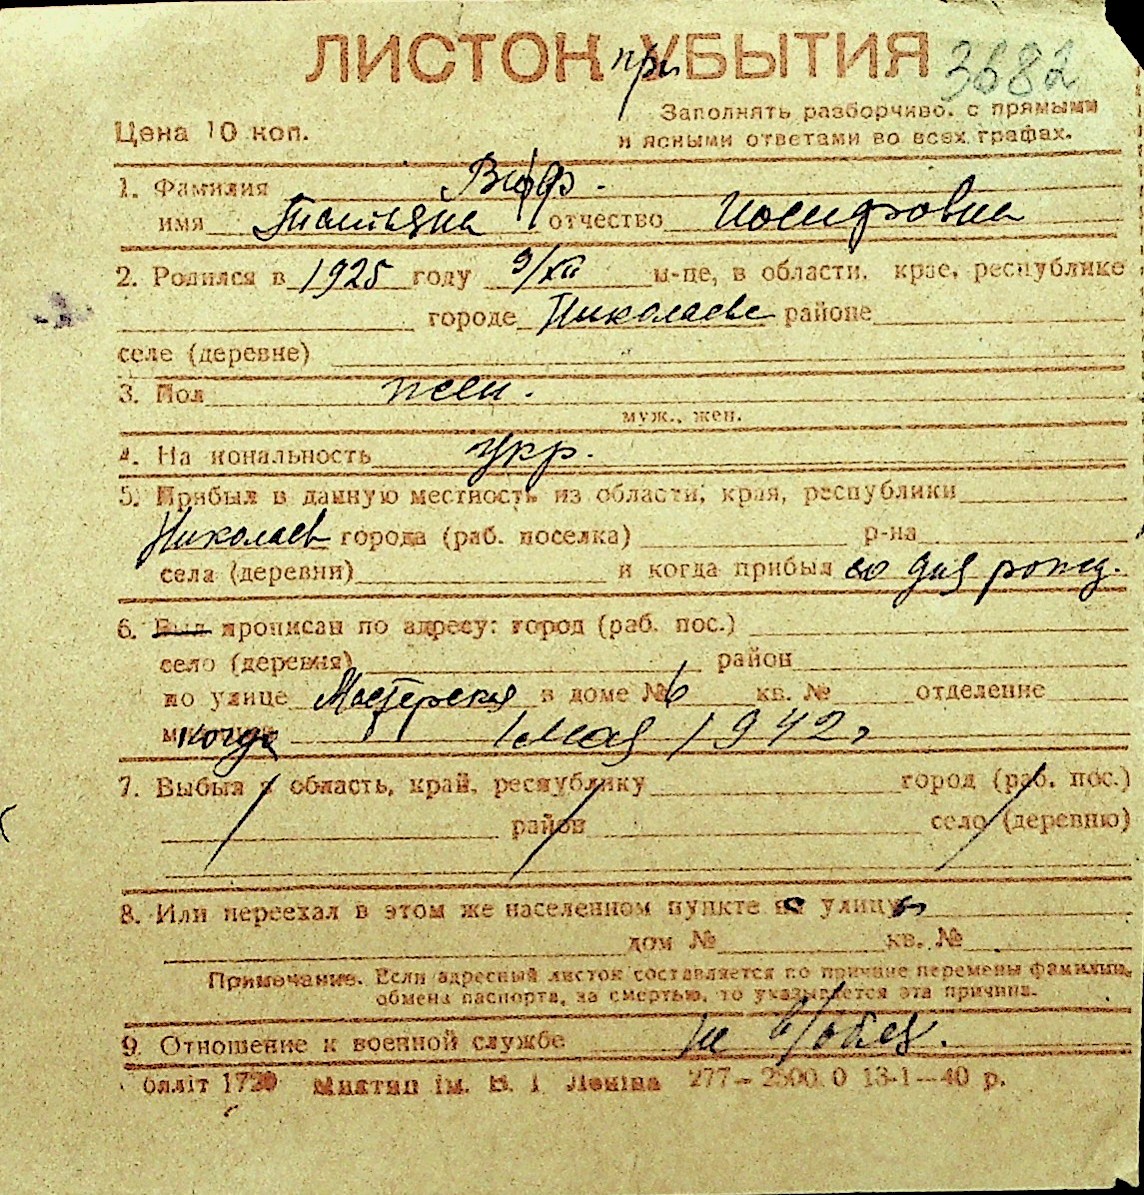 ЛИСТОК при УБЫТИЯ 3682
Цена 10 коп.
Заполнять разборчиво, с прямыми
и ясными ответами во всех графах.
1. Фамилия
имя Татьяна отчество Иосифовна
2. Родился в 1925 году 9/XII м-це, в области, крае, республике
городе Николаеве районе
селе (деревне)
3. Пол жен.
муж., жен.
4. На иональность укр.
5. Прибыл в данную местность из области, края, республики
Николаев города (раб. поселка) р-на
села (деревни) и когда прибыл со дня рожд.
6. Был прописан по адресу: город (раб. пос.)
село (деревня) район
по улице Мастерская в доме № 6 кв. № отделение
когда 1 мая 1942 г
7. Выбыл в область, край, республику город (раб. пос.)
район село (деревню)
8. Или переехал в этом же населенном пункте с улицы
дом № кв. №
Примечание. Если адресный листок составляется по причине перемены фамилии,
обмена паспорта, за смертью, то указывается эта причина.
9. Отношение к военной службе не в/обяз.
бліт 1720 Миктип ім. В. І Леніна 277—2500.0 13-1—40 р.